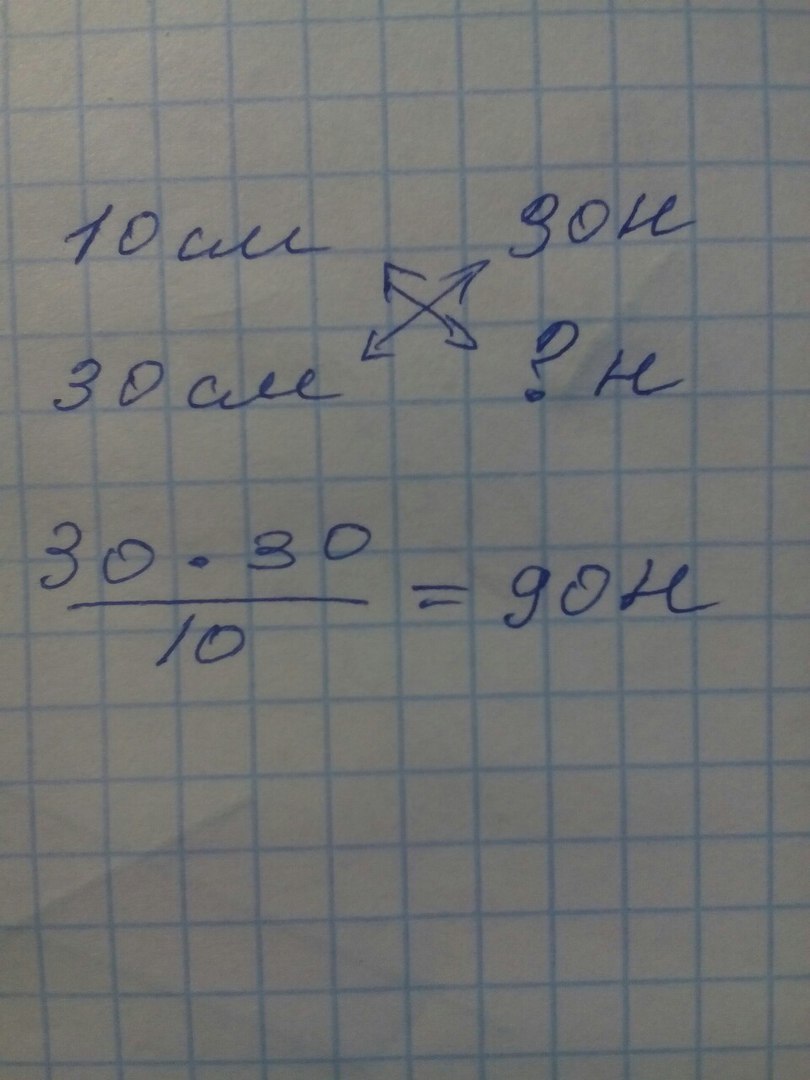 10 см 30 Н
30 см ? Н
30 · 30
10
= 90 Н